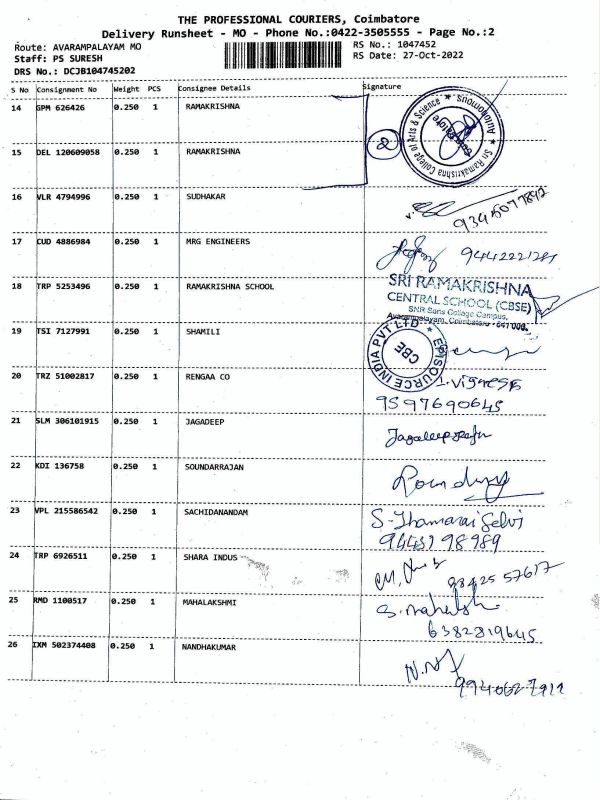 THE PROFESSIONAL COURIERS, Coimbatore
Delivery Runsheet - MO - Phone No.:0422-3505555 - Page No.:2
Route: AVARAMPALAYAM MO
RS No.: 1047452
Staff: PS SURESH
RS Date: 27-Oct-2022
DRS No.: DCJB104745202
S No Consignment No Weight PCS Consignee Details Signature
14 GPM 626426 0.250 1 RAMAKRISHNA
Sri Ramakrishna College of Arts & Science ★ Autonomous ★
2
15 DEL 120609058 0.250 1 RAMAKRISHNA
16 VLR 4794996 0.250 1 SUDHAKAR
17 CUD 4886984 0.250 1 MRG ENGINEERS
18 TRP 5253496 0.250 1 RAMAKRISHNA SCHOOL
SRI RAMAKRISHNA
CENTRAL SCHOOL (CBSE)
SNR Sons College Campus,
Avarampalayam, Coimbatore - 641 006.
19 TSI 7127991 0.250 1 SHAMILI
EPISOURCE INDIA PVT LTD ★
CBE
20 TRZ 51002817 0.250 1 RENGAA CO
9597690645
21 SLM 306101915 0.250 1 JAGADEEP
22 KDI 136758 0.250 1 SOUNDARRAJAN
23 VPL 215586542 0.250 1 SACHIDANANDAM S-Thamarai Selvi
24 TRP 6926511 0.250 1 SHARA INDUS 98425 57617
25 RMD 1100517 0.250 1 MAHALAKSHMI
6382819645
26 IXM 502374408 0.250 1 NANDHAKUMAR